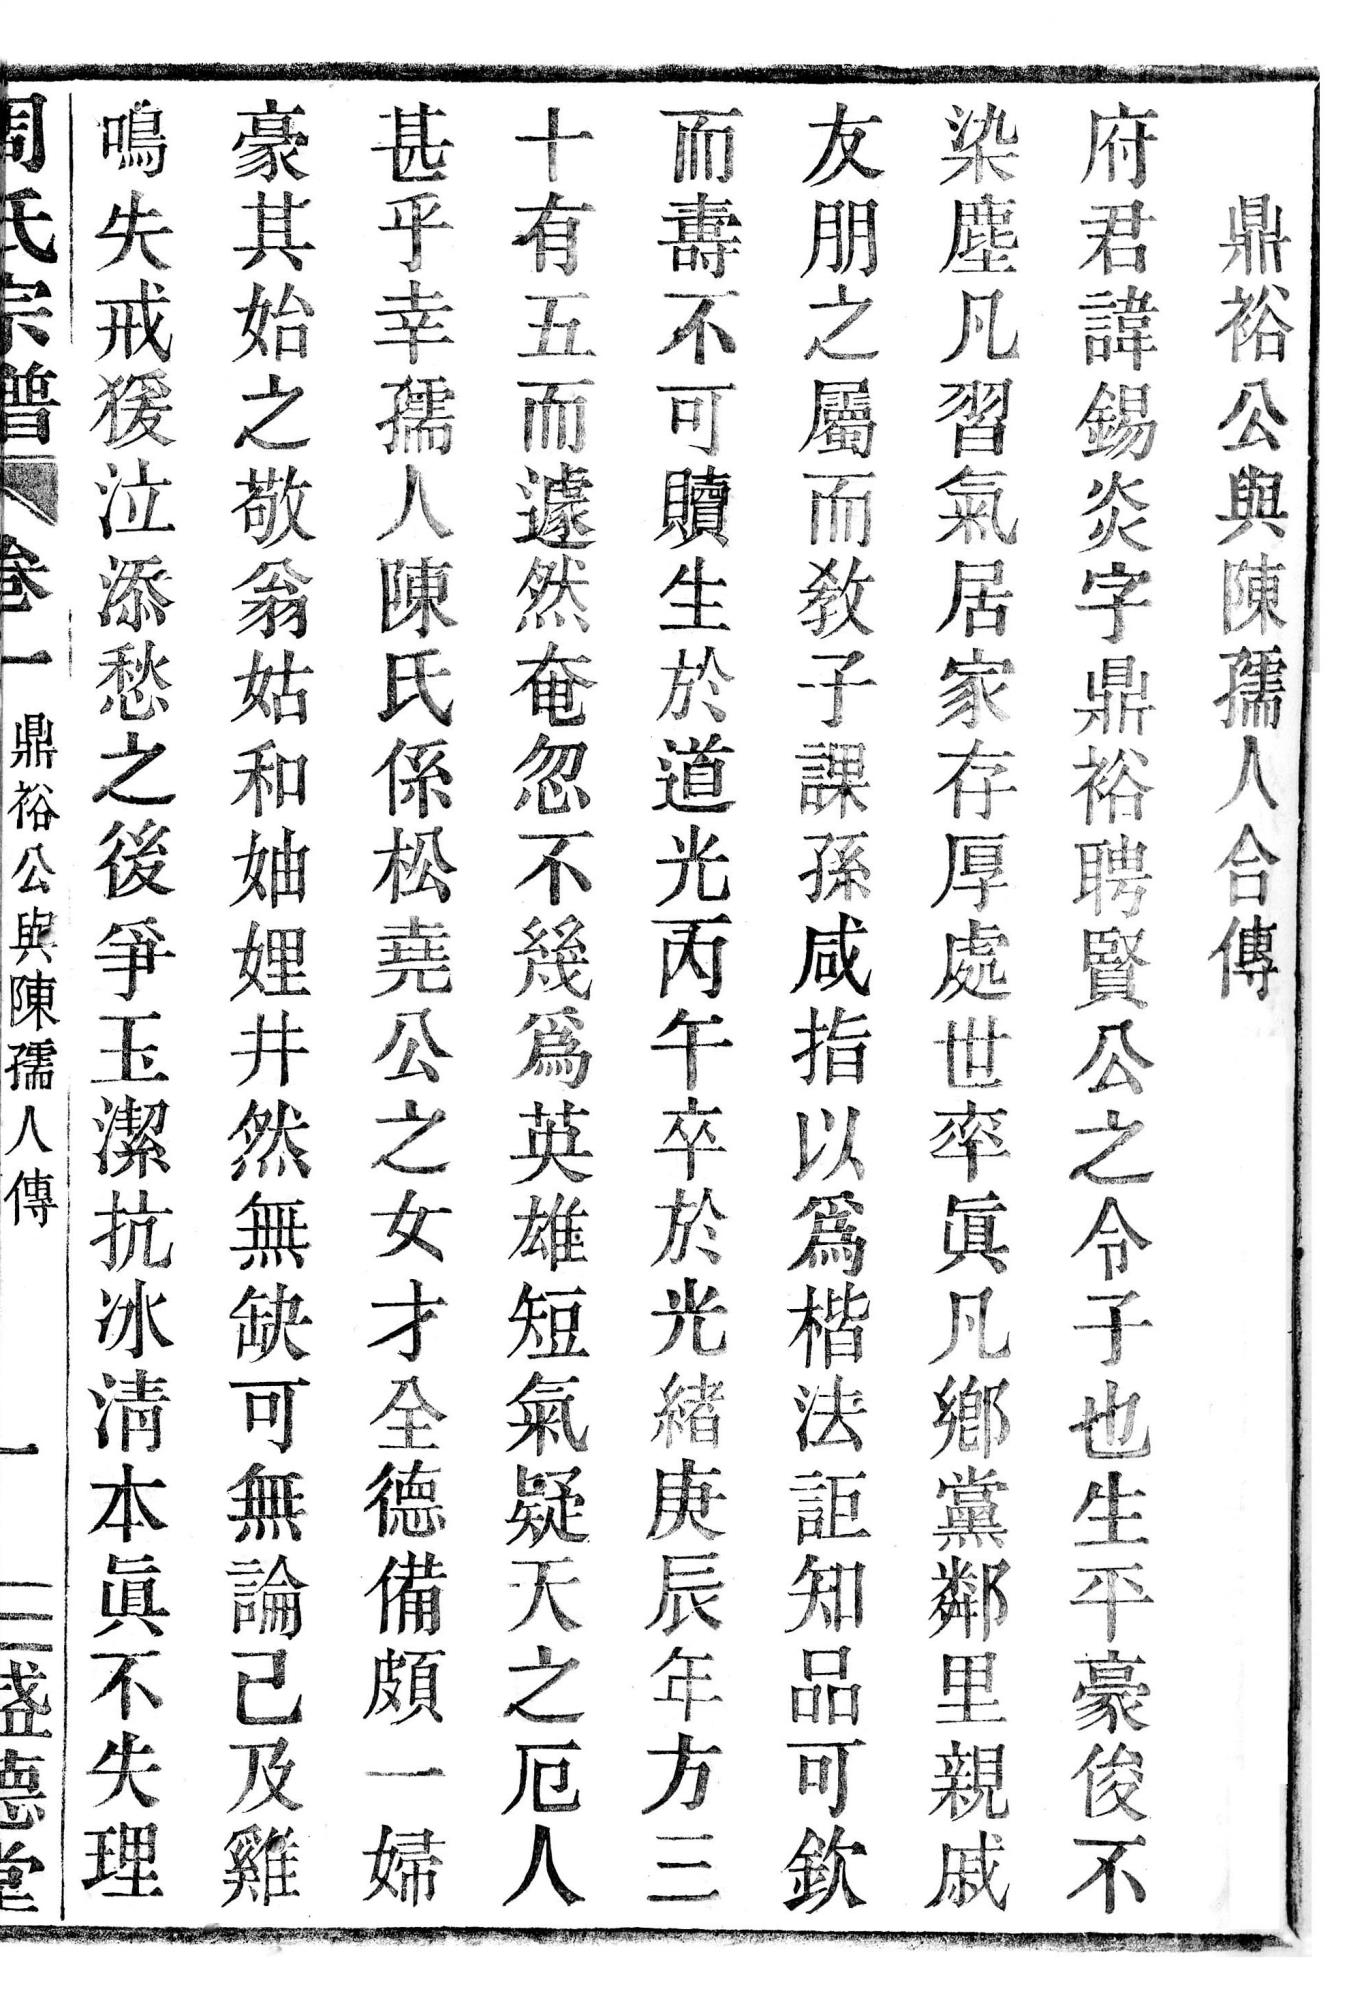 鼎裕公與陳孺人合傳
府君諱錫炎字鼎裕聘賢公之令子也生平豪俊不
染塵凡習氣居家存厚處世率眞凡鄉黨鄰里親戚
友朋之屬而敎子課孫咸指以爲楷法詎知品可欽
而壽不可贖生於道光丙午卒於光緖庚辰年方三
十有五而遽然奄忽不幾爲英雄短氣疑天之厄人
甚乎幸孺人陳氏係松堯公之女才全德備頗一婦
豪其始之敬翁姑和妯娌井然無缺可無論已及雞
鳴失戒猨泣添愁之後爭玉潔抗冰清本眞不失理
周氏宗譜 卷一 鼎裕公與陳孺人傳 一 盛德堂